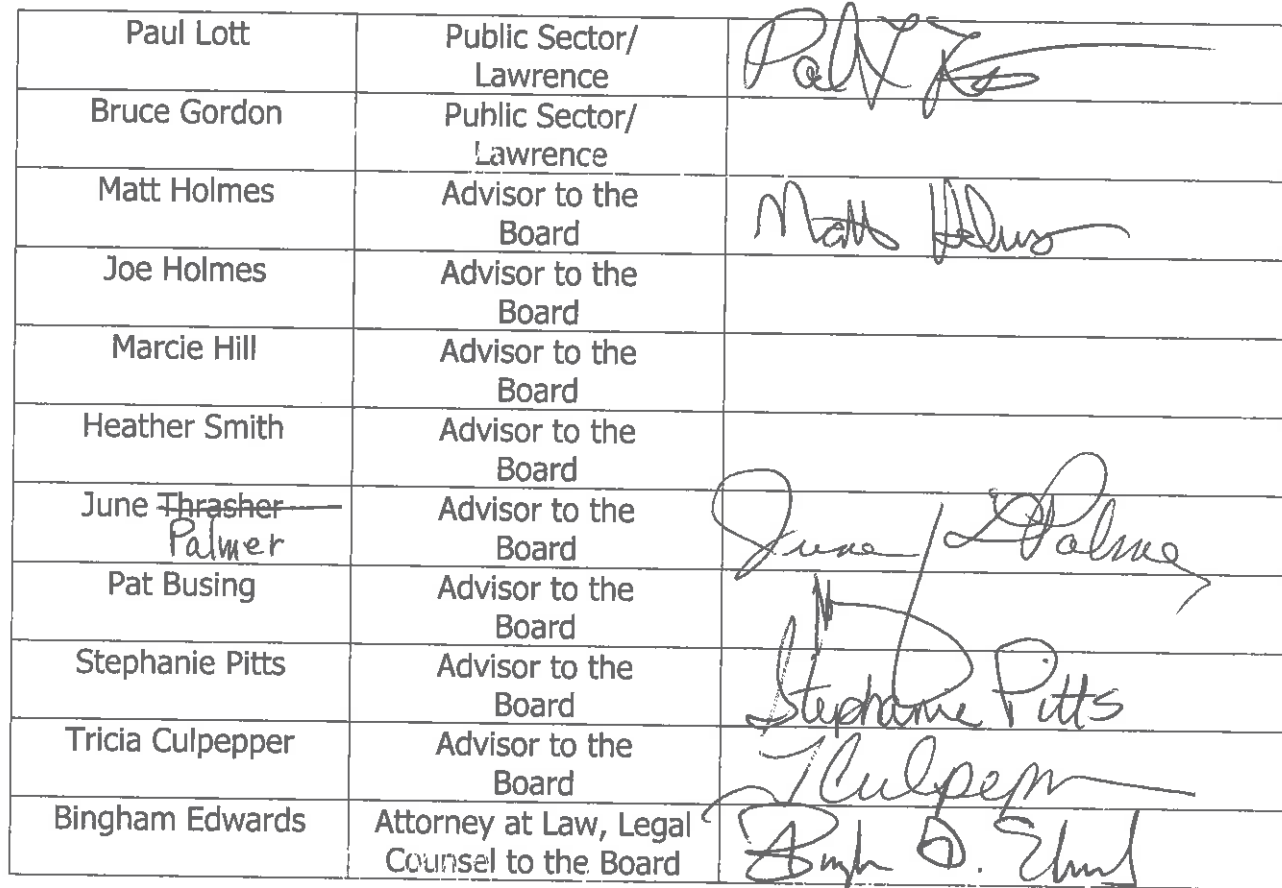 Paul Lott Public Sector/
Lawrence
Bruce Gordon Public Sector/
Lawrence
Matt Holmes Advisor to the Matt Holmes
Board
Joe Holmes Advisor to the
Board
Marcie Hill Advisor to the
Board
Heather Smith Advisor to the
Board
June Thrasher Advisor to the June Palmer
Palmer Board
Pat Busing Advisor to the
Board
Stephanie Pitts Advisor to the
Board Stephanie Pitts
Tricia Culpepper Advisor to the
Board
Bingham Edwards Attorney at Law, Legal
Counsel to the Board